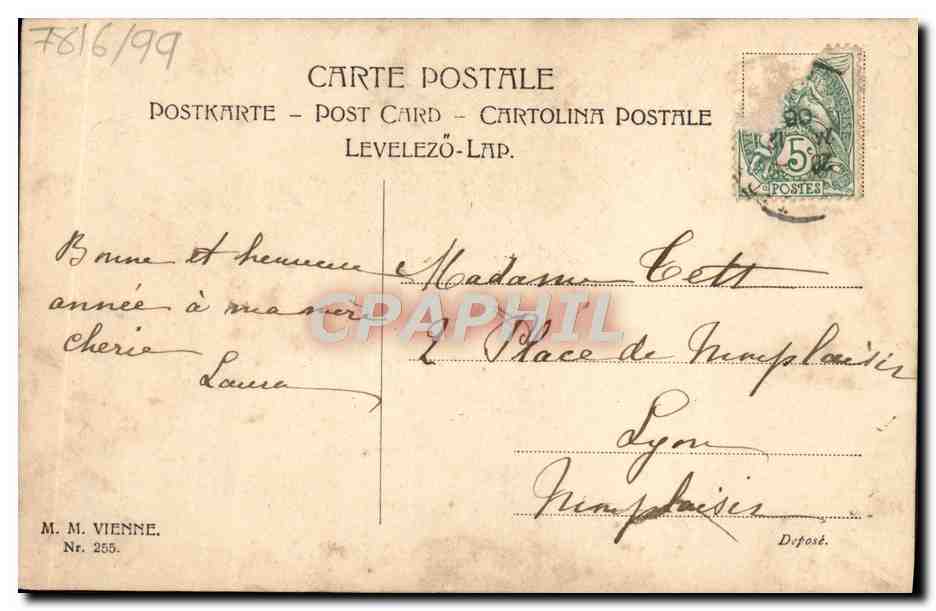 7816/99
CARTE POSTALE
POSTKARTE – POST CARD – CARTOLINA POSTALE
LEVELEZŐ-LAP.
5c
POSTES
Bonne et heureuse
année à ma mère
cherie
Laura
Madame Tett
2 Place de Monplaisir
Lyon
Monplaisir
CPAPHIL
M. M. VIENNE.
Nr. 255.
Deposé.